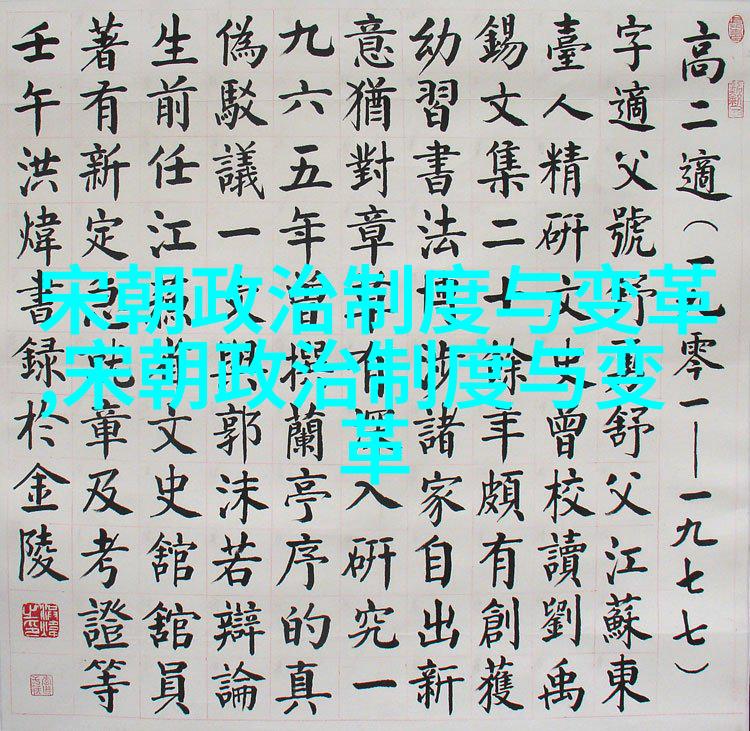 高二適（一九零一—一九七七）
字適父號舒父江蘇東
臺人精研文史曾校讀劉禹
錫文集二十餘年頗有創獲
幼習書法博涉諸家自出新
意猶對章草有深入研究一
九六五年曾撰蘭亭序的真
偽駁議一文與郭沫若辯論
生前任江蘇省文史館館員
著有新定急就章及考證等
壬午洪煒書録於金陵
宋朝政治制度与变革
,宋朝政治制度与变
革